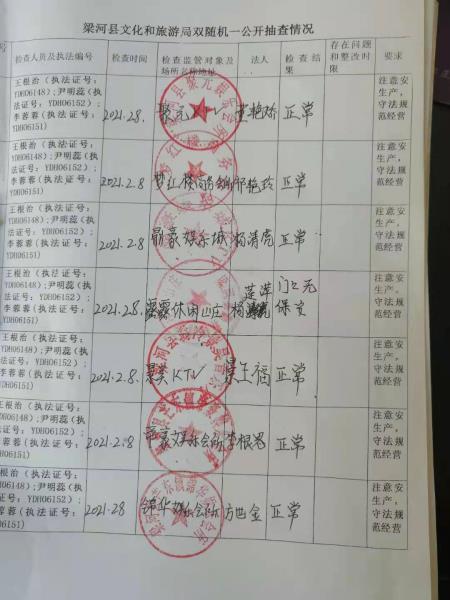 梁河县文化和旅游局双随机一公开抽查情况
号 检查人员及执法编号 检查时间 检查监管对象及场所名称地址 法人 检查结果 存在问题和整改时限 要求
王根治（执法证号：
YDH06148）;尹明蕊（执
法证号：YDH06152）;
李蓉蓉（执法证号：
YDH06151）
2021.2.8. 聚元KTV 艳玲 正常
注意安
生产，
守法规
范经营
王根治（执法证号：
YDH06148）;尹明蕊（执
法证号：YDH06152）;
李蓉蓉（执法证号：
YDH06151）
2021.2.8 艳玲 正常
注意安
生产，
守法规
范经营
王根治（执法证号：
YDH06148）;尹明蕊（执
法证号：YDH06152）;
李蓉蓉（执法证号：
YDH06151）
2021.2.8 豪娱乐城 杨清虎 正常
注意安
生产，
守法规
范经营
王根治（执法证号：
YDH06148）;尹明蕊（执
法证号：YDH06152）;
李蓉蓉（执法证号：
YDH06151）
2021.2.8. 休闲山庄 杨 门口无保安
注意安
生产，
守法规
范经营
王根治（执法证号：
YDH06148）;尹明蕊（执
法证号：YDH06152）;
李蓉蓉（执法证号：
YDH06151）
2021.2.8. KTV 景玉福 正常
注意安
生产，
守法规
范经营
王根治（执法证号：
YDH06148）;尹明蕊（执
法证号：YDH06152）;
李蓉蓉（执法证号：
YDH06151）
2021.2.8 豪娱乐会所 李根 正常
注意安
生产，
守法规
范经营
王根治（执法证号：
YDH06148）;尹明蕊（执
法证号：YDH06152）;
李蓉蓉（执法证号：
YDH06151）
2021.2.8 锦华娱乐会所 方世金 正常
注意安
生产，
守法规
范经营